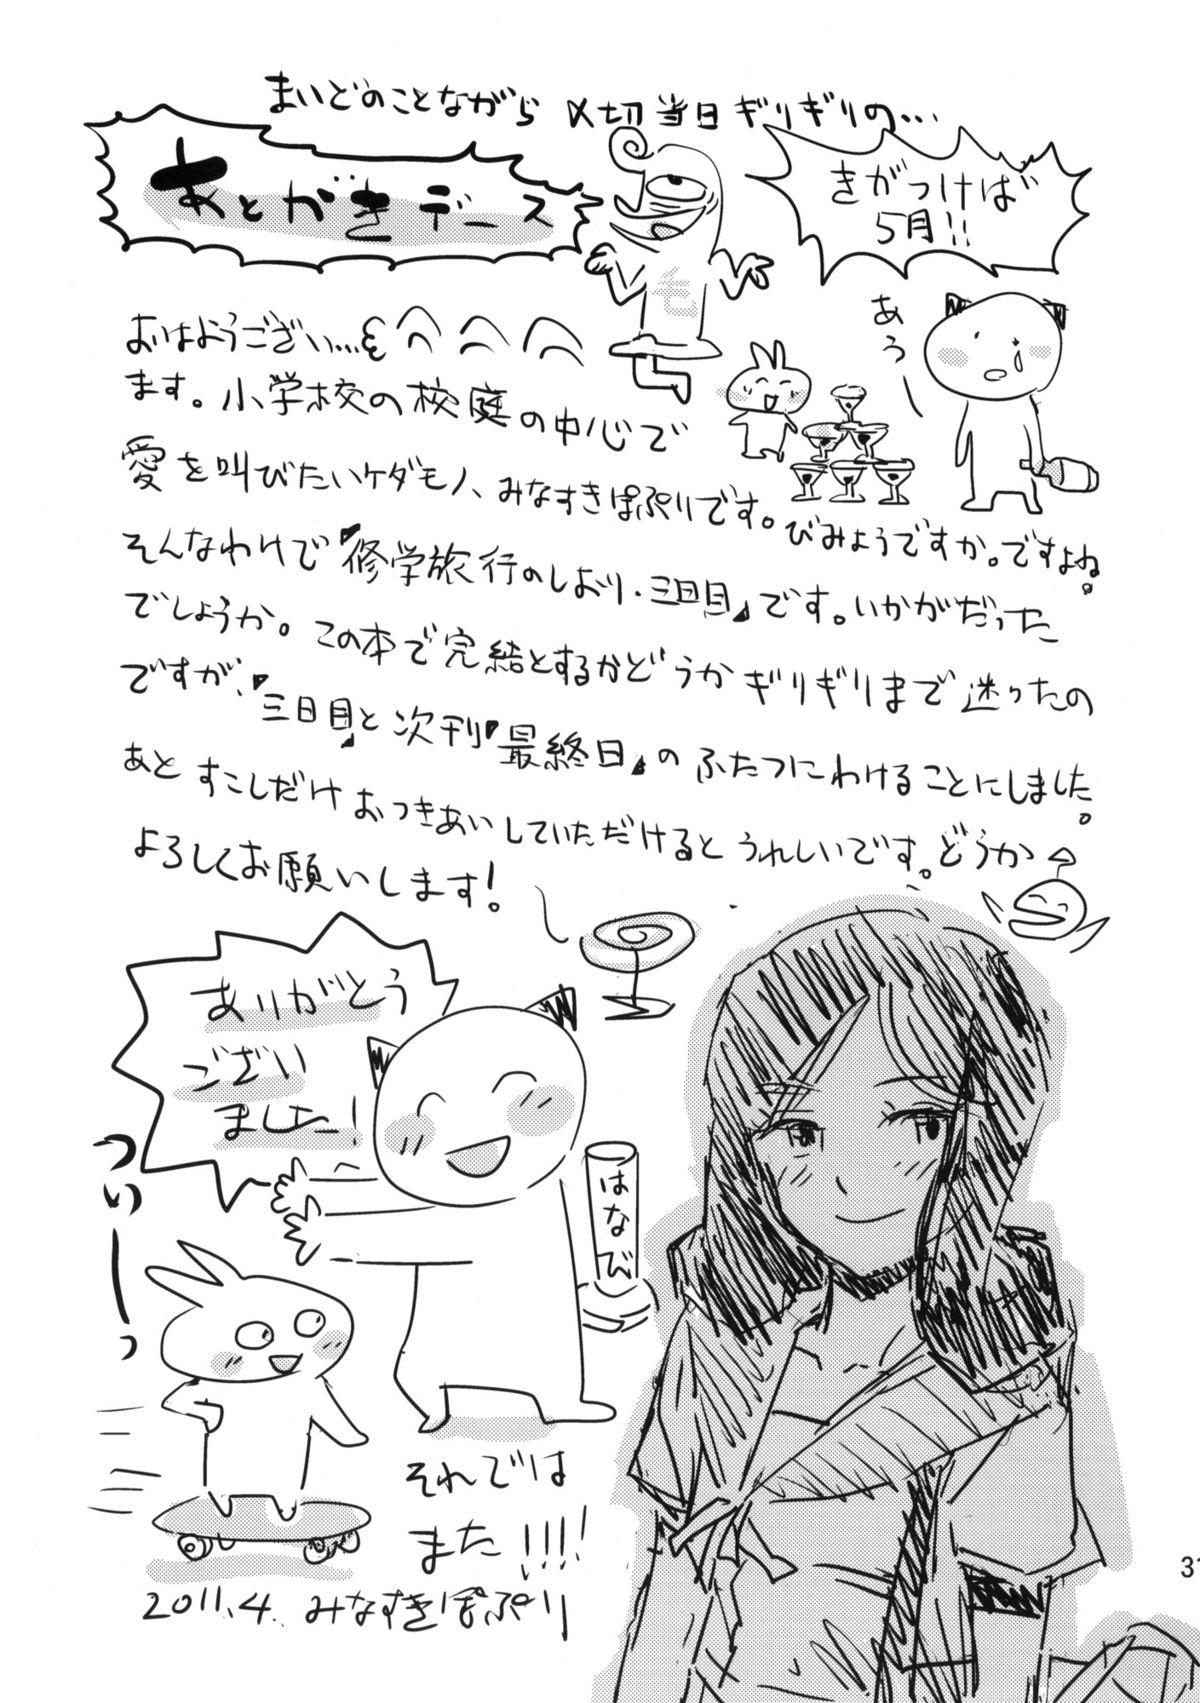 まいどのことながら〆切当日ぎりぎりの…
あとがきデース
きがつけば
5月!!
あう
も
おはようござい…
ます。小学校の校庭の中心で
愛を叫びたいケダモノ、みなすきぽぷりです。びみょうですか。ですよね。
そんなわけで『修学旅行のしおり・三日目』です。いかがだった
でしょうか。この本で完結とするかどうかギリギリまで迷ったの
ですが、『三日目』と次刊『最終日』のふたつにわけることにしました。
あとすこしだけおつきあいしていただけるとうれしいです。どうか
よろしくお願いします！
ありがとう
ござい
ました！
つぃーっ
はなび
それでは
また!!!!
2011.4. みなすきぽぷり